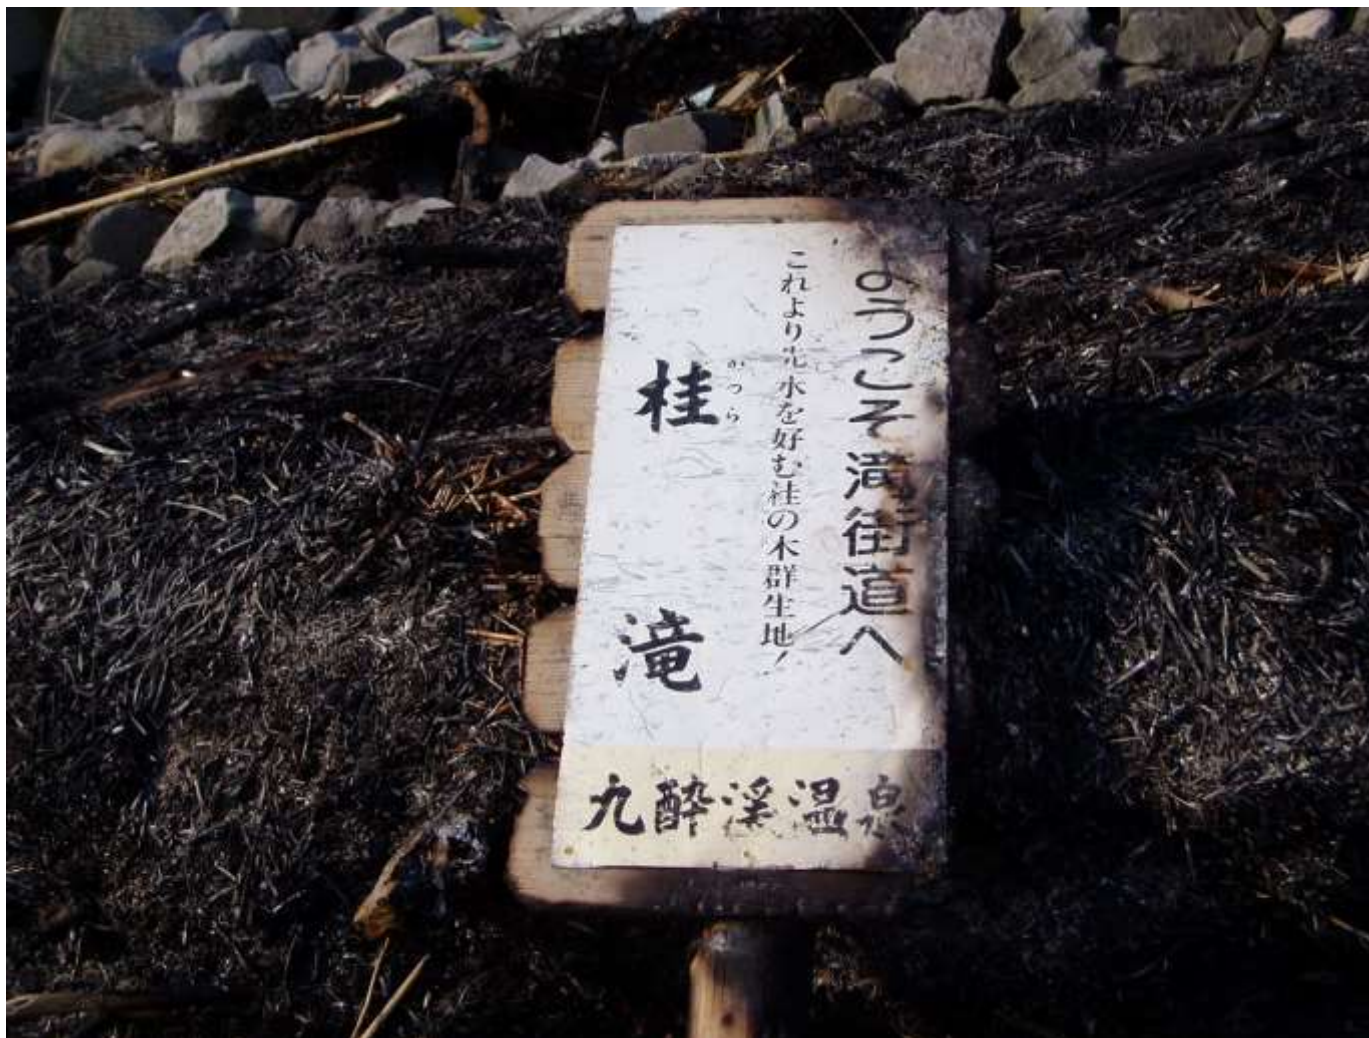 ようこそ滝街道へ
これより先水を好む桂の木群生地!
かつら
桂滝
九酔渓温泉